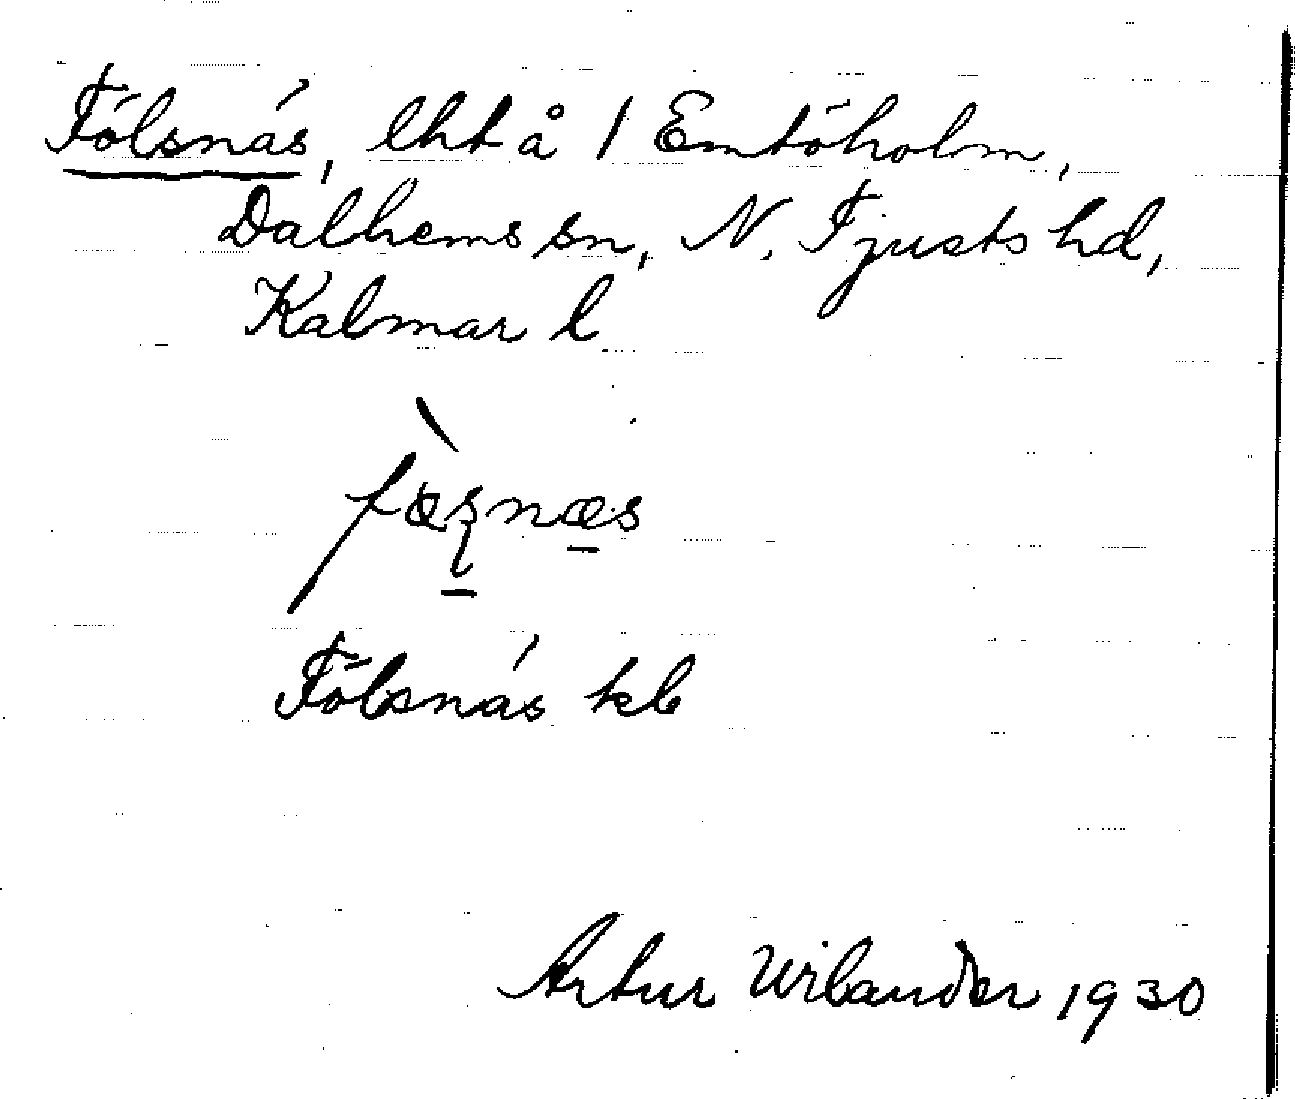 Fölsnäs, lht å 1 Emtöholm,
Dalhems sn, N. Tjusts hd,
Kalmar l
Fölsnäs kb
Artur Wilander 1930